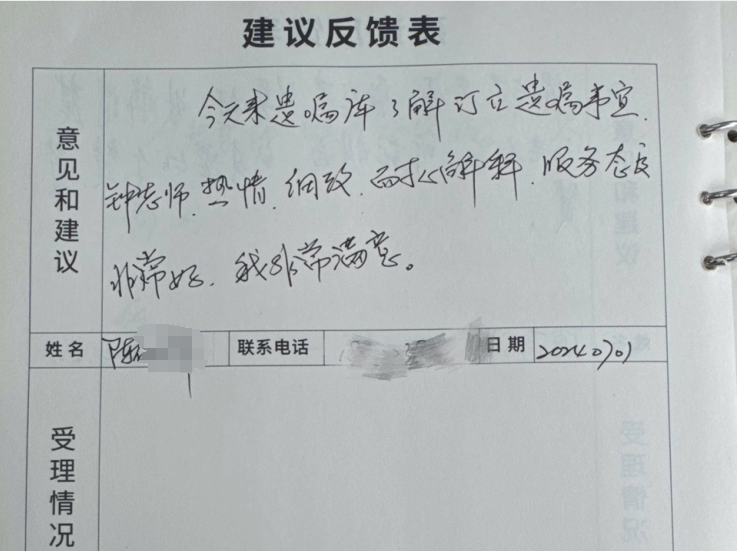 建议反馈表
意见和建议
今天来遗嘱库了解订立遗嘱事宜.
钟老师.热情.细致.耐心解释.服务态度
非常好.我非常满意。
姓名 陈 联系电话 日期 2024.07.01
受理情况